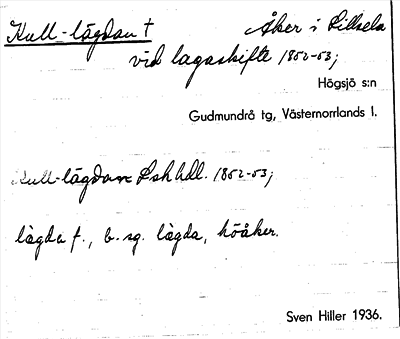 Kull-lägdan † Åker i Lillsela
vid lagaskifte 1852-53;
Högsjö s:n
Gudmundrå tg, Västernorrlands l.
Kull-lägdan Lskhdl. 1852-53;
lägda f., b. sg. lägda, höåker.
Sven Hiller 1936.